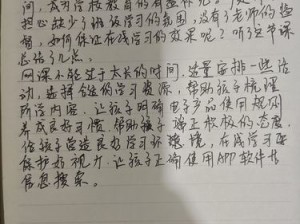 问，对学校教育的有益补充。
担心缺少了班级学习的氛围，没有了老师的监
督，如何保证在线学习的效果呢？听了这节课
总结了几点。
网课不能过于太长的时间，尽量安排一些活
动，选择合适的学习资源，帮助孩子梳理
所学内容，让孩子明确电子产品使用规则
养成良好习惯，帮助孩子端正教放的态度，
给孩子营造良好学习环境，在线学习要
保护好视力，让孩子正确使用APP软件去
信息搜索。